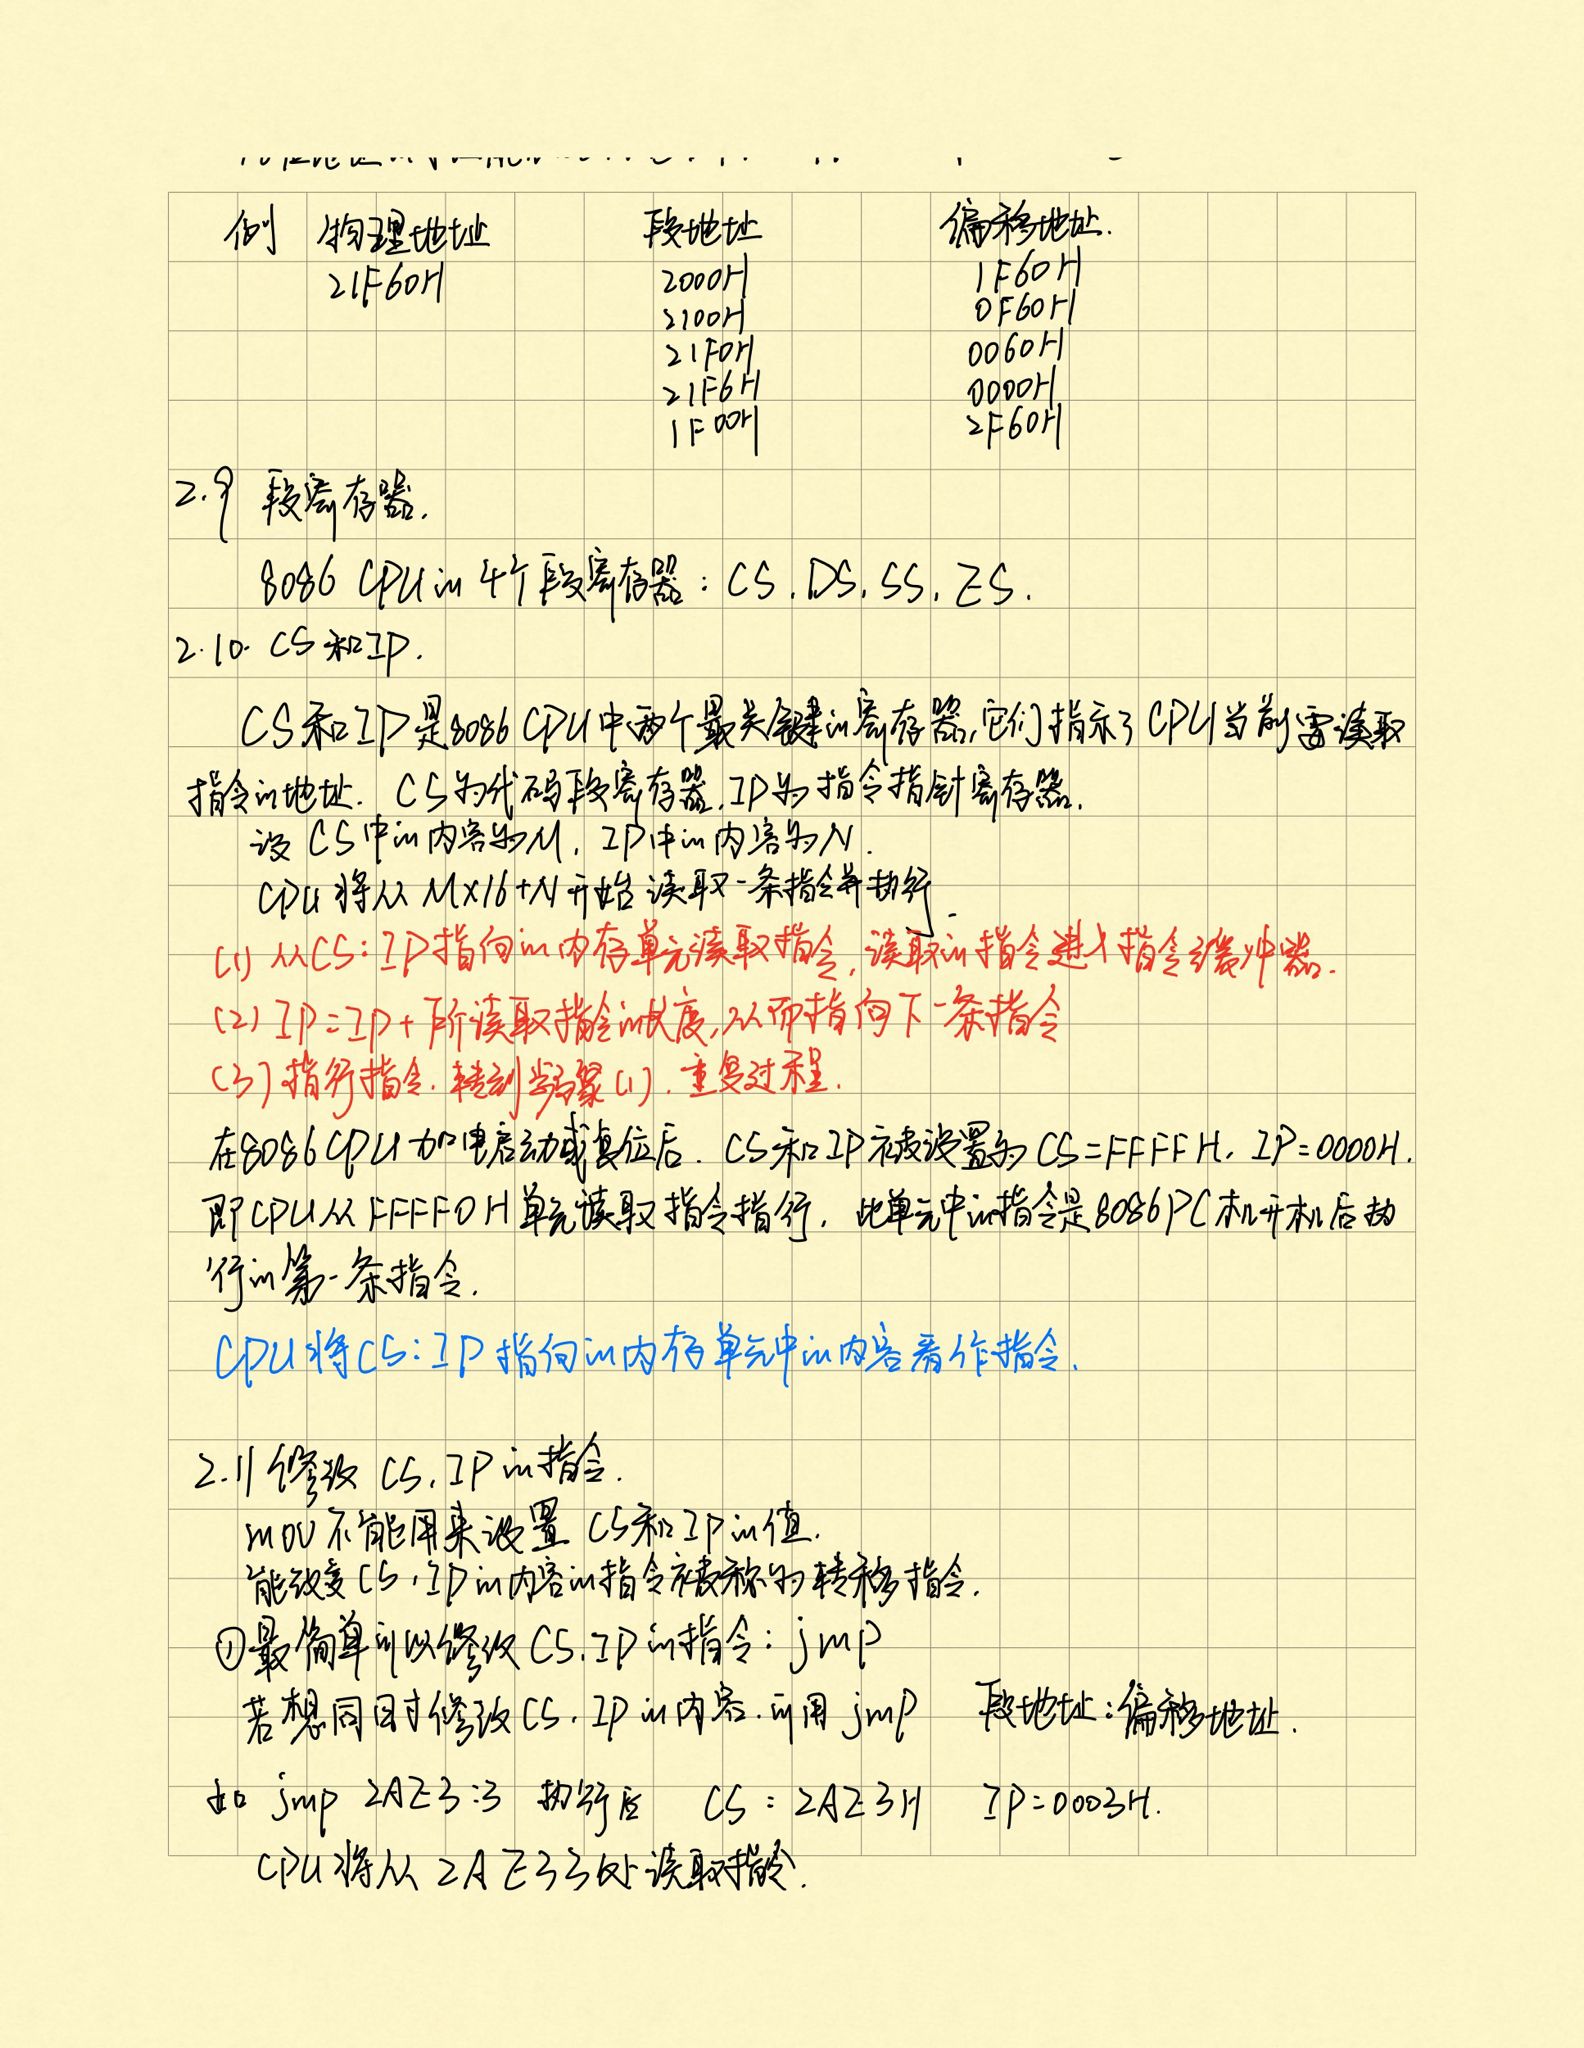 例 物理地址 段地址 偏移地址.
21F60H 2000H 1F60H
2100H 0F60H
21F0H 0060H
21F6H 0000H
1F00H 2F60H
2.9 段寄存器.
8086 CPU的4个段寄存器: CS. DS. SS. ES.
2.10. CS和IP.
CS和IP是8086CPU中两个最关键的寄存器,它们指示了CPU当前需读取
指令的地址. CS为代码段寄存器.IP为指令指针寄存器.
设CS中的内容为M, IP中的内容为N.
CPU将从M×16+N开始读取一条指令并执行.
(1) 从CS:IP指向的内存单元读取指令,读取的指令进入指令缓冲器.
(2) IP=IP+所读取指令的长度,从而指向下一条指令
(3) 指行指令. 转到步骤(1). 重复过程.
在8086CPU加电启动或复位后. CS和IP被设置为CS=FFFFH. IP=0000H.
即CPU从FFFF0H单元读取指令指行. 此单元中的指令是8086PC机开机后执
行的第一条指令.
CPU将CS:IP指向的内存单元中的内容看作指令.
2.11 修改 CS. IP的指令.
mov不能用来设置 CS和IP的值.
能改变CS, IP的内容的指令被称为转移指令.
①最简单可以修改CS.IP的指令: jmp
若想同时修改CS. IP的内容.可用 jmp 段地址:偏移地址.
如 jmp 2AE3:3 执行后 CS=2AE3H IP=0003H.
CPU将从 2AE33处读取指令.